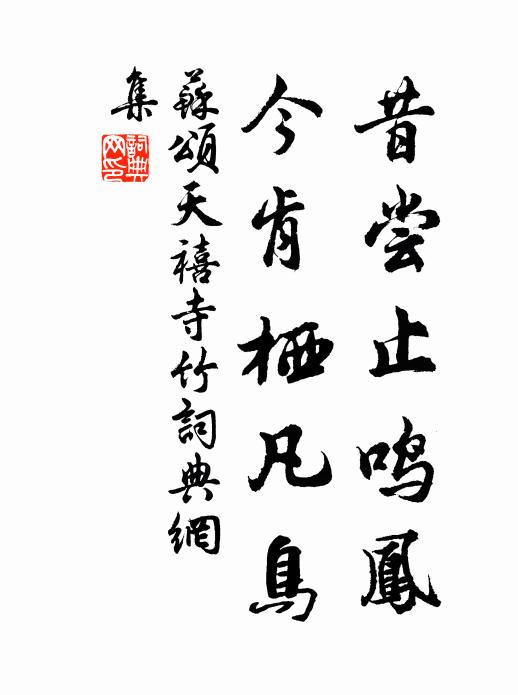 昔尝止鸣鳳
今肯栖凡鳥
蘇頌天禧寺竹詞典網
集
詞典網印